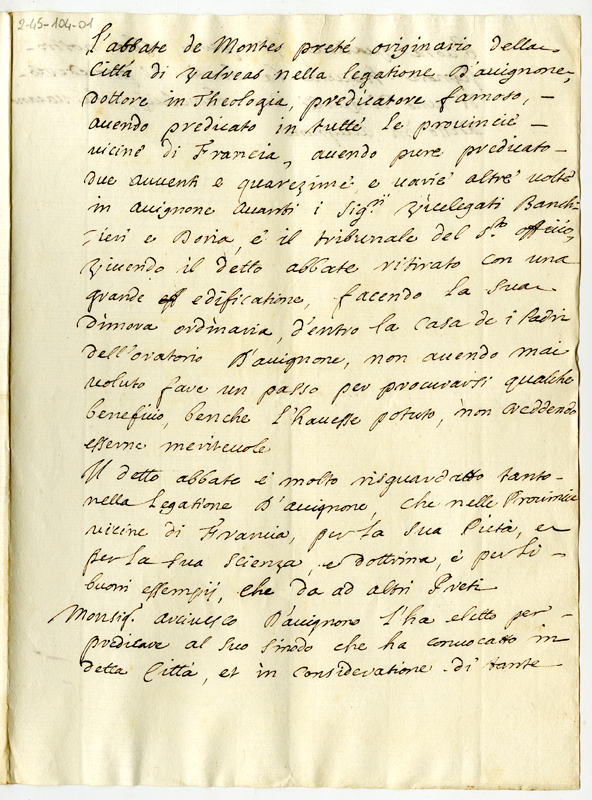 2-45-104-01
L'abbate de Montes prete originario della
Città di Valreas nella legatione D'auignone,
Dottore in Theologia, predicatore famoso, –
auendo predicato in tutte le prouincie –
uicine di Francia, auendo pure predicato –
due auuenti e quarezime e uarie altre uolte
in auignone auanti i Sig.ri Vicelegati Banchi-
-ieri e Doria, e il tribunale del S.to officio,
Viuendo il detto abbate ritirato con una
grande eff edificatione, facendo la Sua
Dimora ordinaria, d'entro la Casa de i Padri
dell'oratorio D'auignone, non auendo mai
uoluto fare un passo per procurarsi qualche
beneficio, benche l'hauesse potuto, non creddendo
esserne meriteuole
Il detto abbate e molto risguardatto tanto
nella Legatione D'auignone, che nelle Prouincie
uicine di Francia, per la sua Pietà, et
per la sua scienza, e dottrina, e per li –
buoni essempij, che da ad altri Preti
Monsig.r arciuesco D'auignone l'ha eletto per –
predicare al suo sinodo che ha conuocatto in
detta Città, et in consideratione di tante